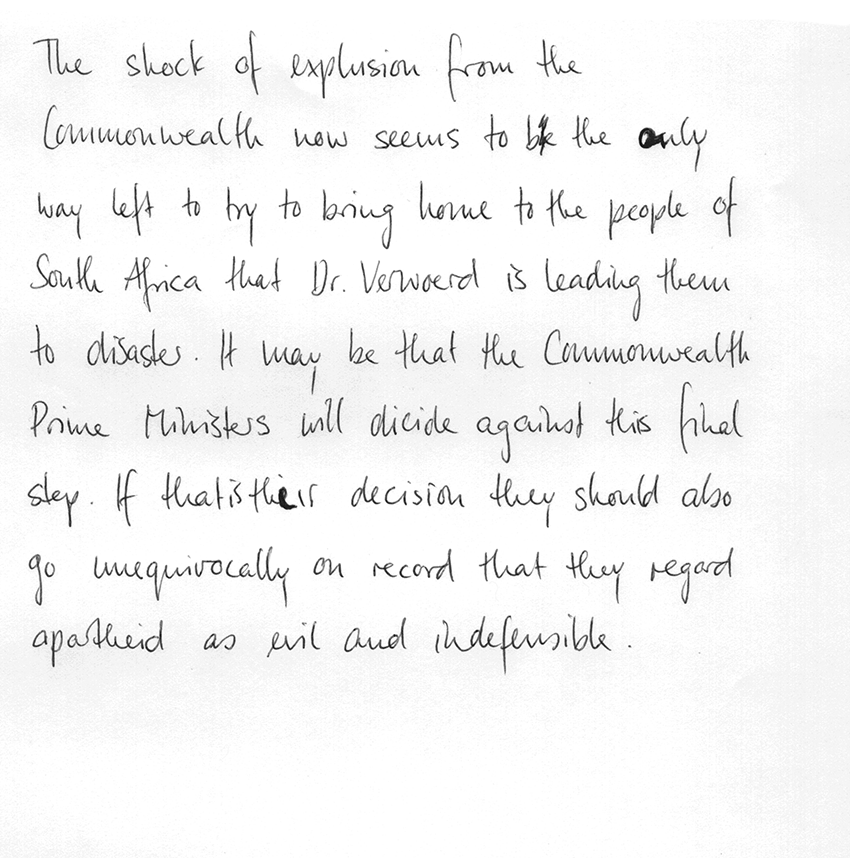 The shock of explusion from the
Commonwealth now seems to be the only
way left to try to bring home to the people of
South Africa that Dr. Verwoerd is leading them
to disaster. It may be that the Commonwealth
Prime Ministers will dicide against this final
step. If that is their decision they should also
go unequivocally on record that they regard
apartheid as evil and indefensible.